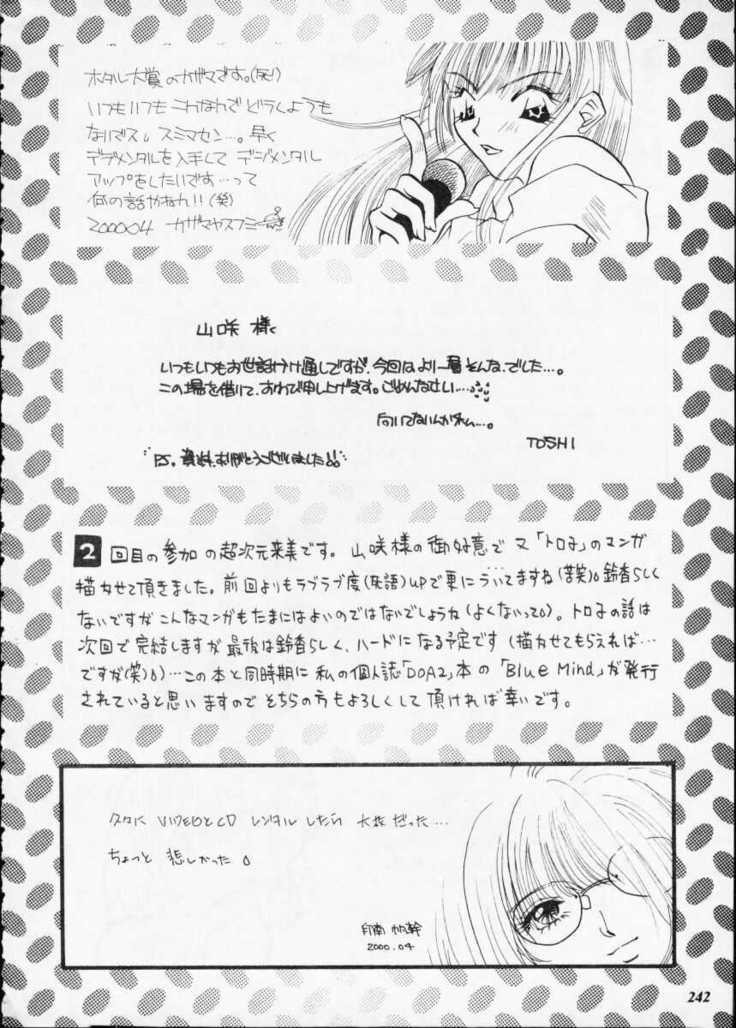 ホタル大賞のカザマです。(死!)
いつもいつもこんなんでどうしようも
ないでス。スミマセン…。早く
デジメンタルを入手して デジメンタル
アップをしたいです…って
何の話やねん!!(笑)
200004 カザマヤスフミ
山咲 様
いつもいつもお世話かけ通しですが、今回はより一層そんな、でした…。
この場を借りて、おわび申し上げます。ごめんなさい…
向いてないんかなぁ…。
TOSHI
PS. 資料、ありがとうございました!!
2回目の参加の超次元来美です。山咲様の御好意でマ「トロ子」のマンガ
描かせて頂きました。前回よりもラブラブ度(死語)UPで更にういてますね(苦笑)。鈴香らしく
ないですがこんなマンガもたまにはよいのではないでしょうね(よくないって)。トロ子の話は
次回で完結しますが最後は鈴香らしく、ハードになる予定です(描かせてもらえれば…
ですが(笑))…この本と同時期に私の個人誌「DOA2」本の「Blue Mind」が発行
されていると思いますのでそちらの方もよろしくして頂ければ幸いです。
VIDEOとCD レンタルしたら だった…
ちょっと 悲しかった。
2000.04
242